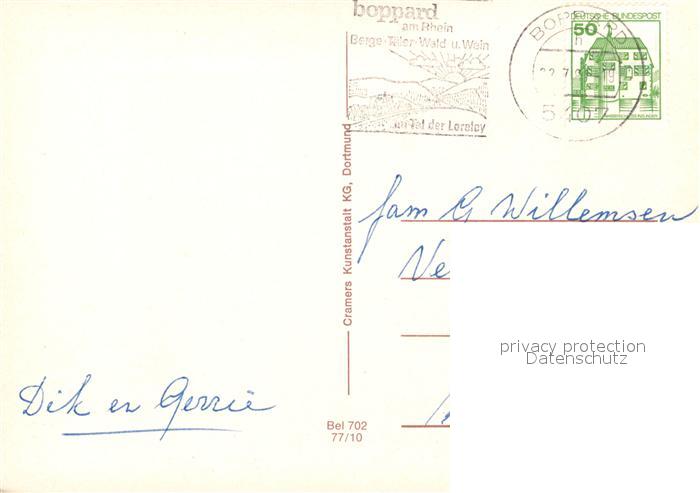 boppard
am Rhein
Berge·Täler·Wald u. Wein
im Tal der Loreley
BOPPARD
DEUTSCHE BUNDESPOST
50
Cramers Kunstanstalt KG, Dortmund
fam G Willemsen
Ve
privacy protection
Datenschutz
Dik en Gerrie
Bel 702
77/10